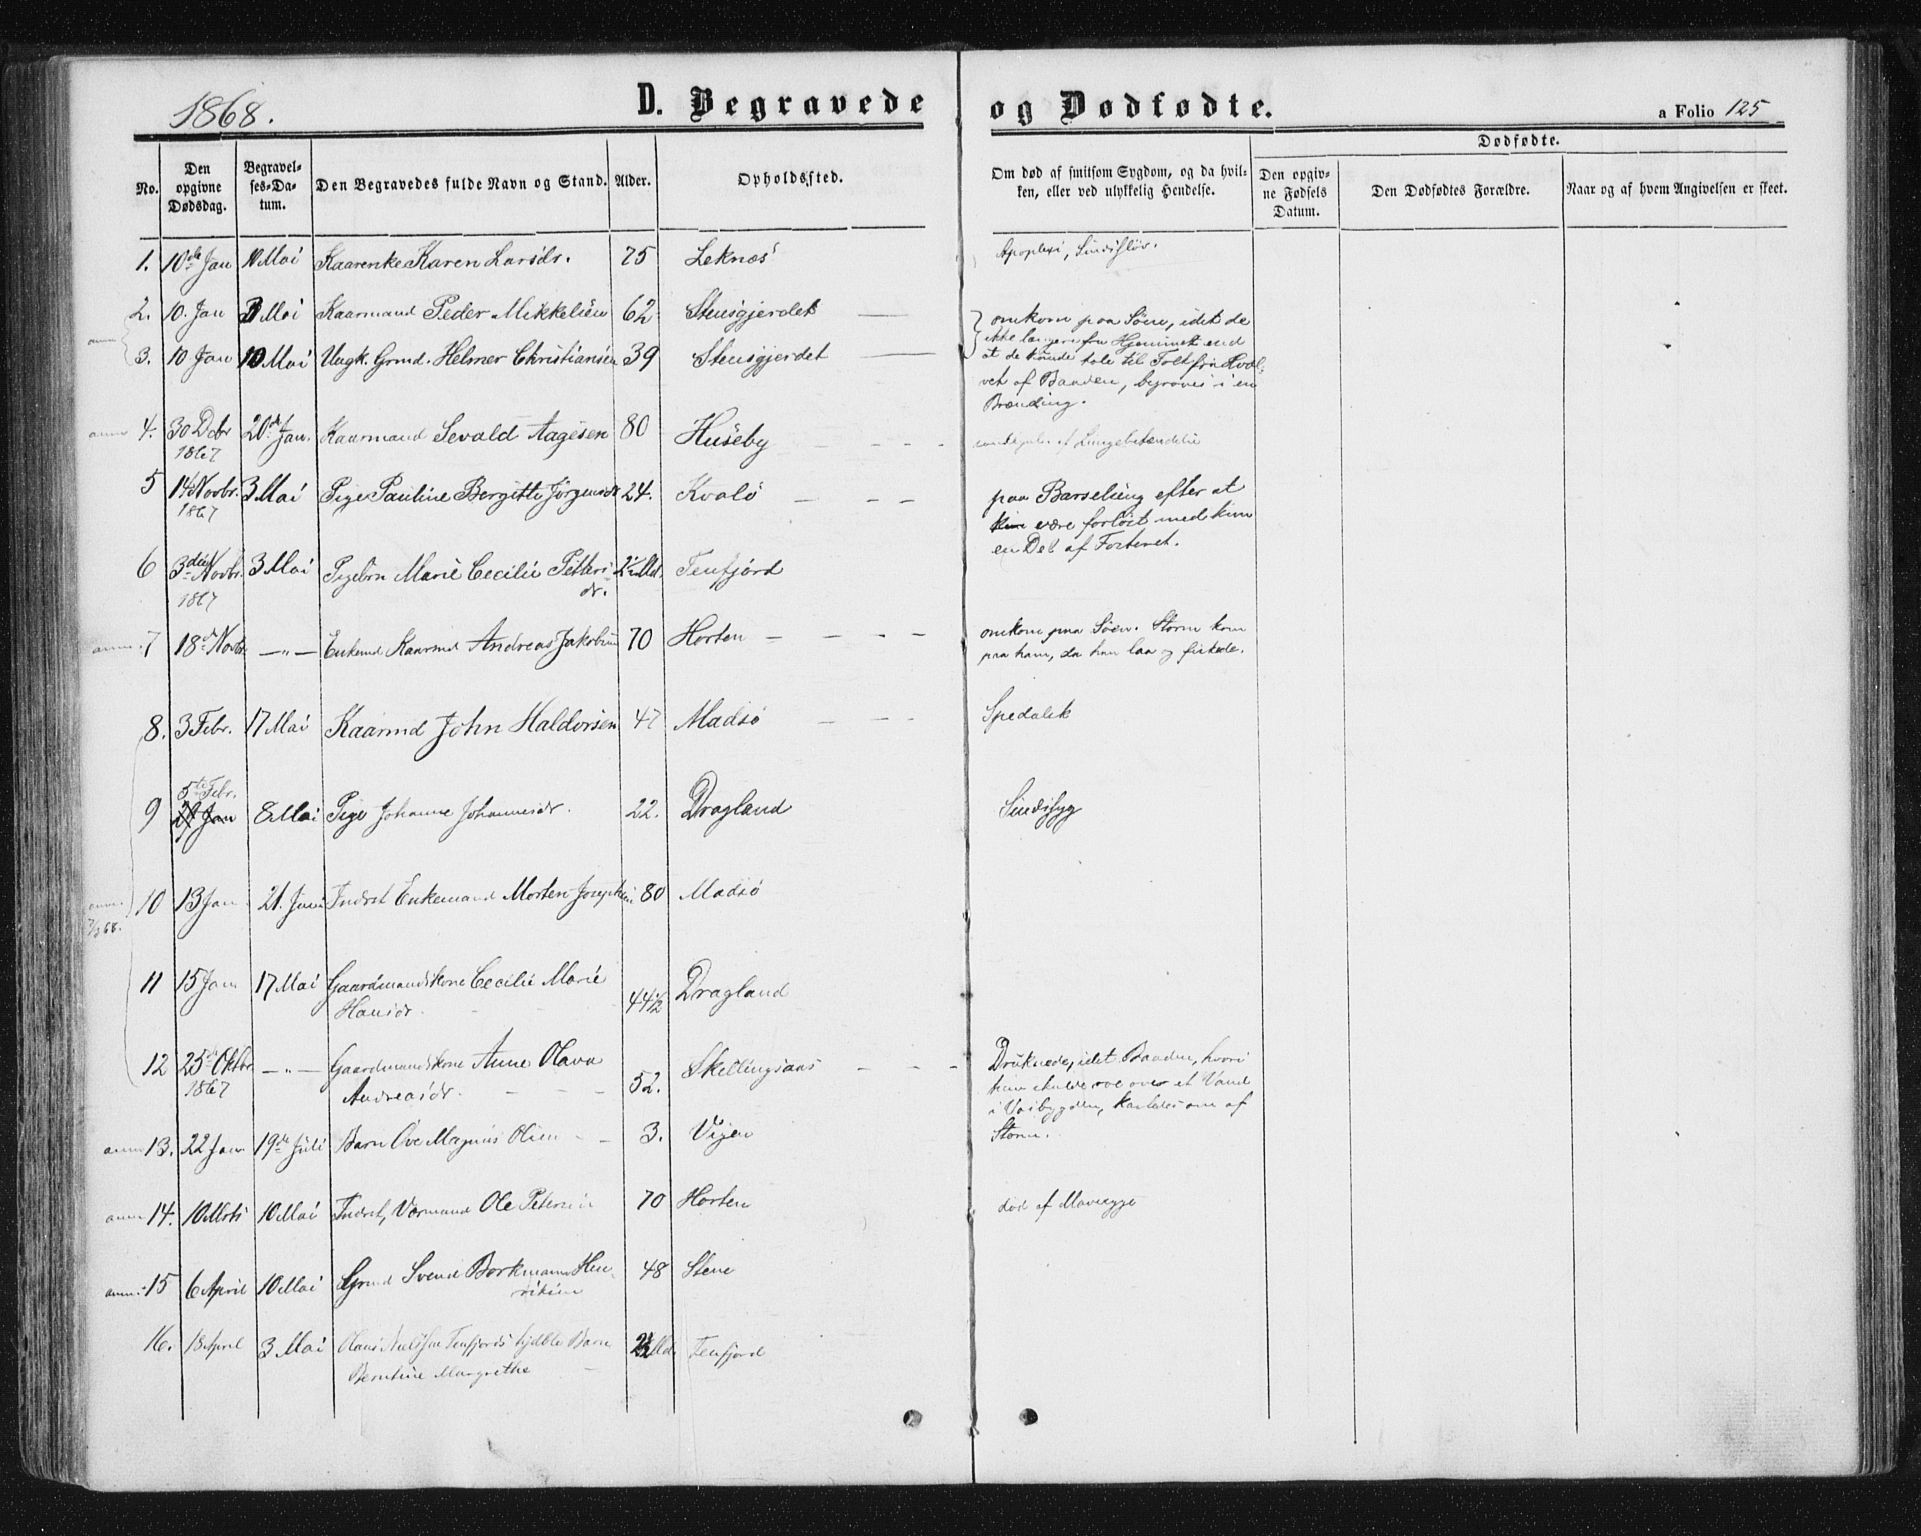 1868.
D. Begravede og Dødfødte.
a Folio 125
No.
Den opgivne Dødsdag.
Begravelses-Datum.
Den Begravedes fulde Navn og Stand.
Alder.
Opholdssted.
Om død af smitsom Sygdom, og da hvilken, eller ved ulykkelig Hendelse.
Dødfødte.
Den opgivne Fødsels Datum.
Den Dødfødtes Forældre.
Naar og af hvem Angivelsen er skeet.
1. 10de Jan 10 Mai Kaarenke Karen Larsdr. 75 Leknæs Apoplexi, Sindssløv.
2. 10. Jan 3 Mai Kaarmand Peder Mikkelsen 62 Stensgjerdet
anm 3. 10 Jan 10 Mai Ungk. Grmd. Helmer Christiansen 39 Stensgjerdet
omkom paa Søen, idet de
ikke længere fra Hjemmet end
at de kunde tale til Folk fra Hvæl-
vet af Baaden, begroves i en
Brænding.
anm 4. 30 Dcbr 1867 20de Jan. Kaarmand Sevald Aagesen 80 Huseby
af Lungebetændelse
5 14 Novbr. 1867 3 Mai Pige Pauline Bergitte Jørgensdr 24. Kvalø
paa Barselseng efter at
være forløst med kun
en Del af Fosteret.
6 3die Novbr. 1867 3 Mai Pigebrn Marie Cecilie Petters-
dr. 2½ Md. Tenfjord
anm. 7 18de Novbr. —"— Enkemd Kaarmd Andreas Jakobsen 70 Horten
omkom paa Søen. Storm kom
paa ham, da han laa og fiskede.
8. 3 Febr. 17 Mai Kaarmd John Haldorsen 47 Madsø Spedalsk
5te Febr.
9 21 Jan 8 Mai Pige Johanne Johannesdr. 22. Dragland Sindssyg
anm. 10 13 Jan 21. Juni Inderst Enkemand Morten Josephsen 80 Madsø
11 15 Jan 17 Mai Gaardmandskone Cecilie Marie
Hansdr. 44½ Dragland
12 25de Oktbr 1867 —"— Gaardmandskone Anne Olava
Andreasdr. 52. Skellingsaas
Druknede, idet Baaden, hvori
hun skulde roe over et Vand
i , kastedes om af
Storm.
anm 13. 22 Jan 19de Juli Barn Ove Magnus Olsen 3. Vigen
anm 14. 10 Mrts 10 Mai Inderst, Værmand Ole Petersen 70 Horten død af Mavesyge
anm. 15 6 April 10 Mai Grmd Svend Borkmann Hen-
riksen 48 Stene
16. 18 April 3 Mai Olaus Tenfjords Barn
Berntine Margrethe Md. Tenfjord